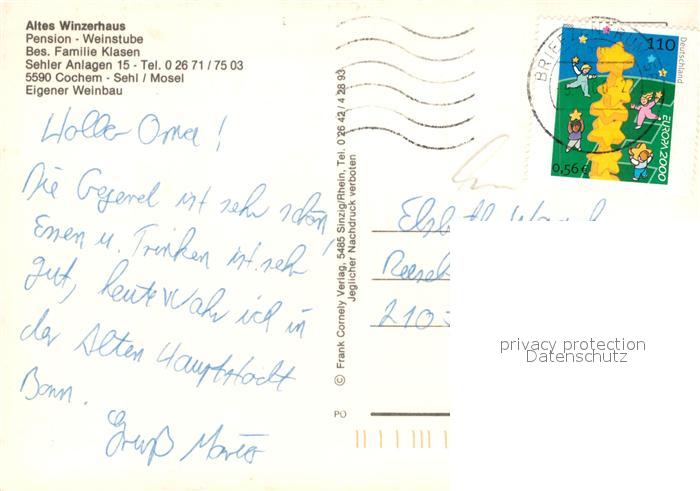 Altes Winzerhaus
Pension - Weinstube
Bes. Familie Klasen
Sehler Anlagen 15 - Tel. 0 26 71 / 75 03
5590 Cochem - Sehl / Mosel
Eigener Weinbau
Hallo Oma!
Die Gegend ist sehr schön!
Essen u. Trinken ist sehr
gut, heute Wahr ich in
der Alten Hauptstadt
Bonn.
Gruß
© Frank Cornely Verlag, 5485 Sinzig/Rhein, Tel. 0 26 42 / 4 28 93
Jeglicher Nachdruck verboten
PO
BRIEFZENTRUM
110
Deutschland
EUROPA 2000
0,56€
210
privacy protection
Datenschutz